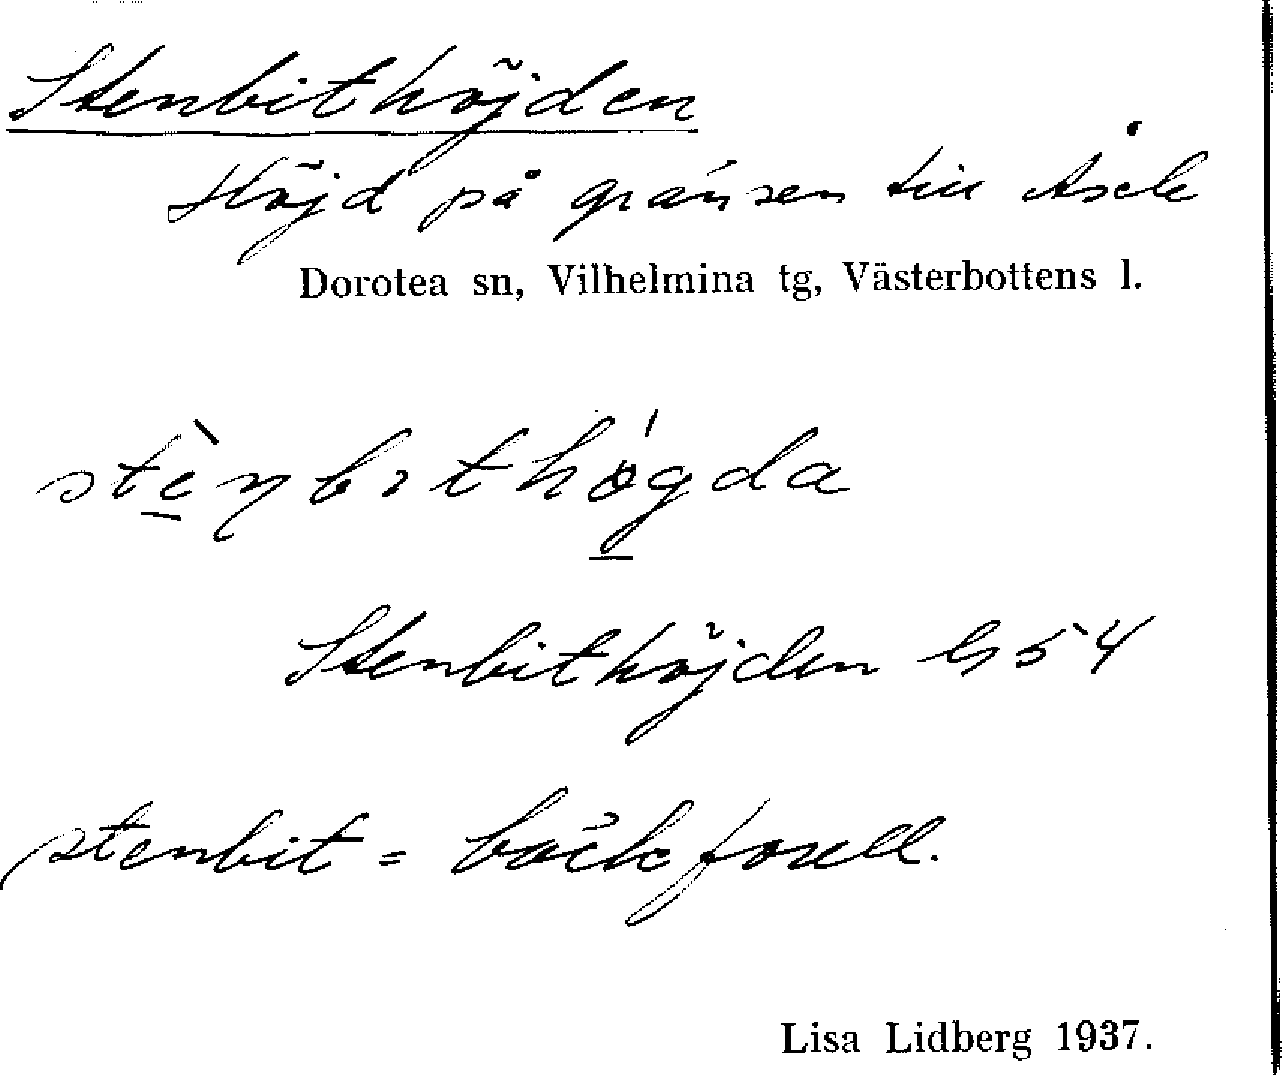 Stenbithöjden
Höjd på gränsen till Åsele
Dorotea sn, Vilhelmina tg, Västerbottens l.
stèŋbıthö́gda
Stenbithöjden G 54
stenbit = bäckforell.
Lisa Lidberg 1937.